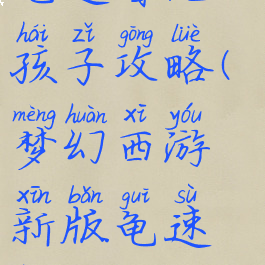 hái zǐ gōng lüè
孩子攻略(
mèng huàn xī yóu
梦幻西游
xīn bǎn guī sù
新版龟速